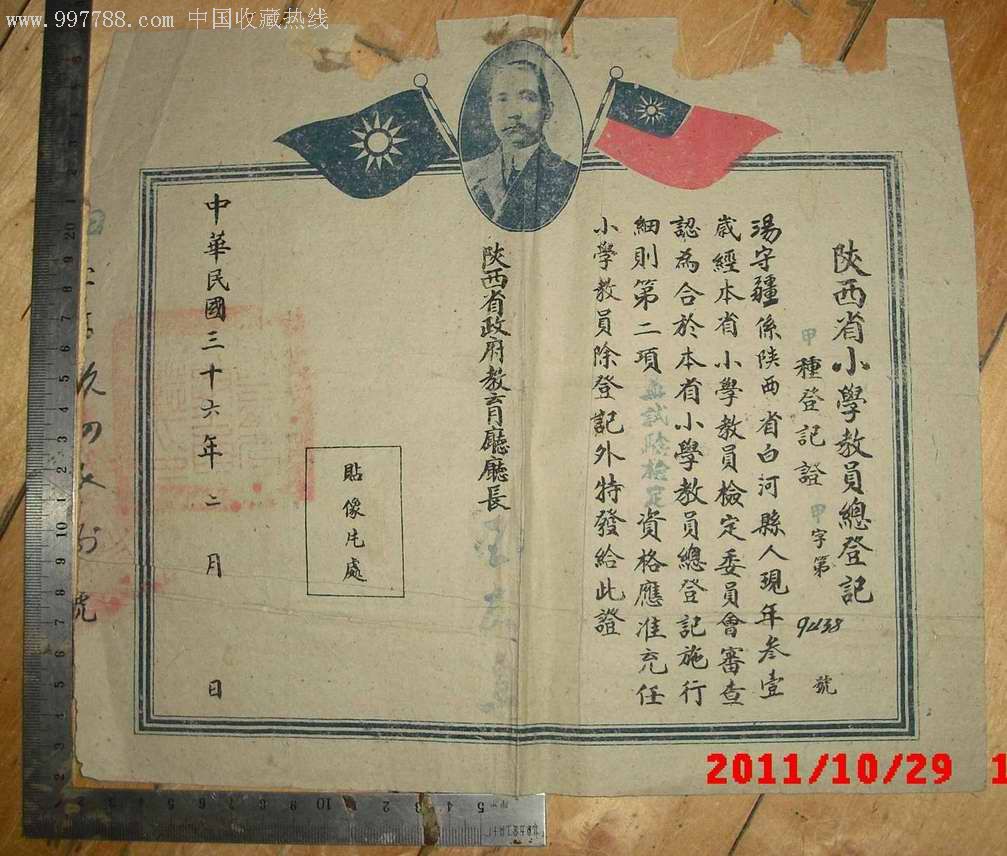 www.997788.com 中国收藏热线
陝西省小學教員總登記
甲種登記證 甲字第9438號
湯守疆係陝西省白河縣人現年叁壹
歲經本省小學教員檢定委員會審查
認為合於本省小學教員總登記施行
細則第二項無試險檢定資格應准充任
小學教員除登記外特發給此證
陝西省政府教育廳廳長
貼像片處
中華民國三十六年二月 日
2011/10/29 1